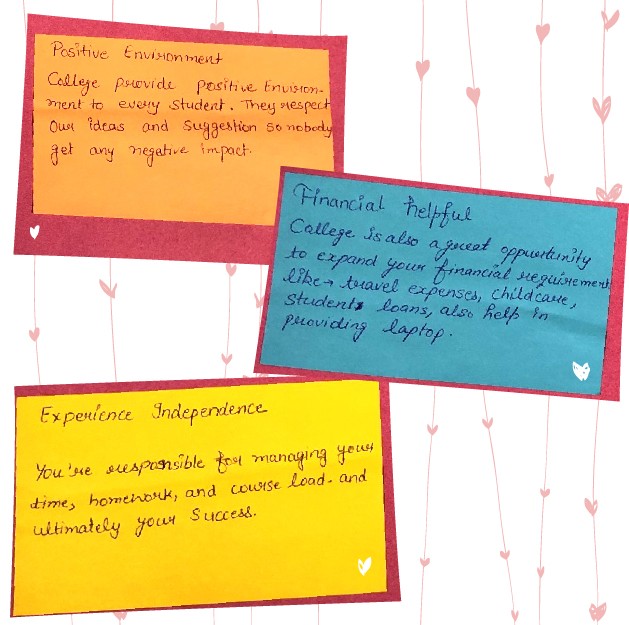 Positive Environment
College provide positive Environ-
ment to every student. They respect
Our ideas and Suggestion so nobody
get any negative impact.
Financial helpful
College is also a great oppurtunity
to expand your financial requirement
like→ travel expenses, childcare,
students loans, also help in
providing laptop.
Experience Independence
You're responsible for managing your
time, homework, and course load- and
ultimately your Success.